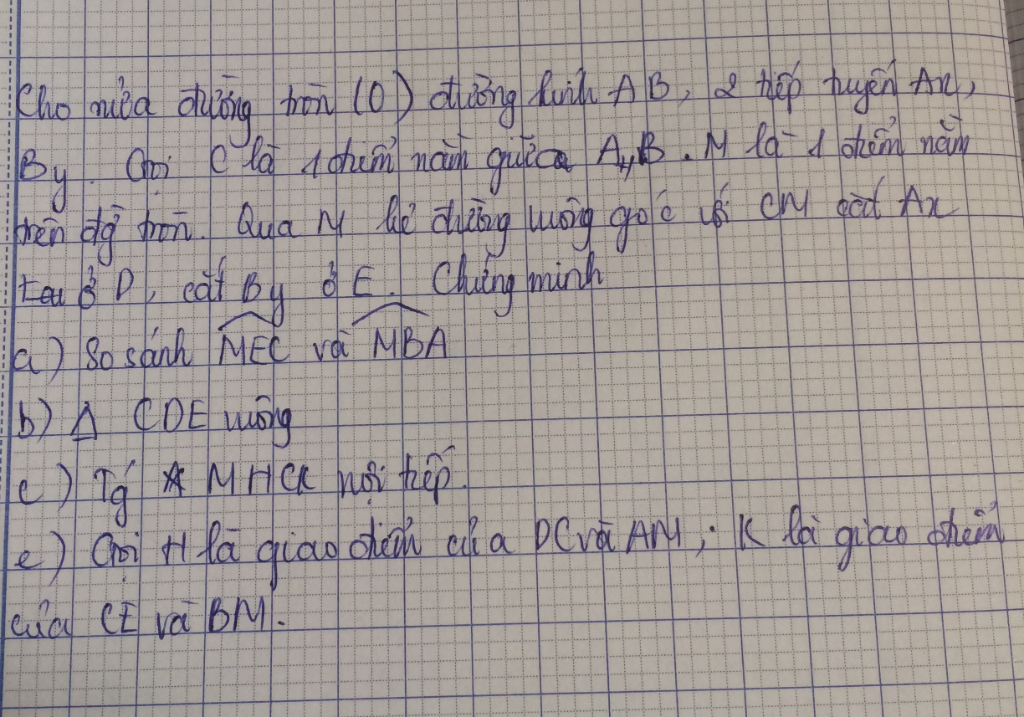 Cho nửa đường tròn (O) đường kính AB, 2 tiếp tuyến Ax,
By. Gọi C là 1 điểm nằm giữa A, B. M là 1 điểm nằm
trên đg tròn. Qua M kẻ đường vuông góc vs CM cắt Ax
ở D, cắt By ở E. Chứng minh
a) So sánh MEC và MBA
b) Δ CDE vuông
c) Tg MHCK nội tiếp.
e) Gọi H là giao điểm của DC và AM ; K là giao điểm
của CE và BM.